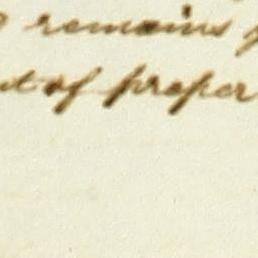 remains
of proper